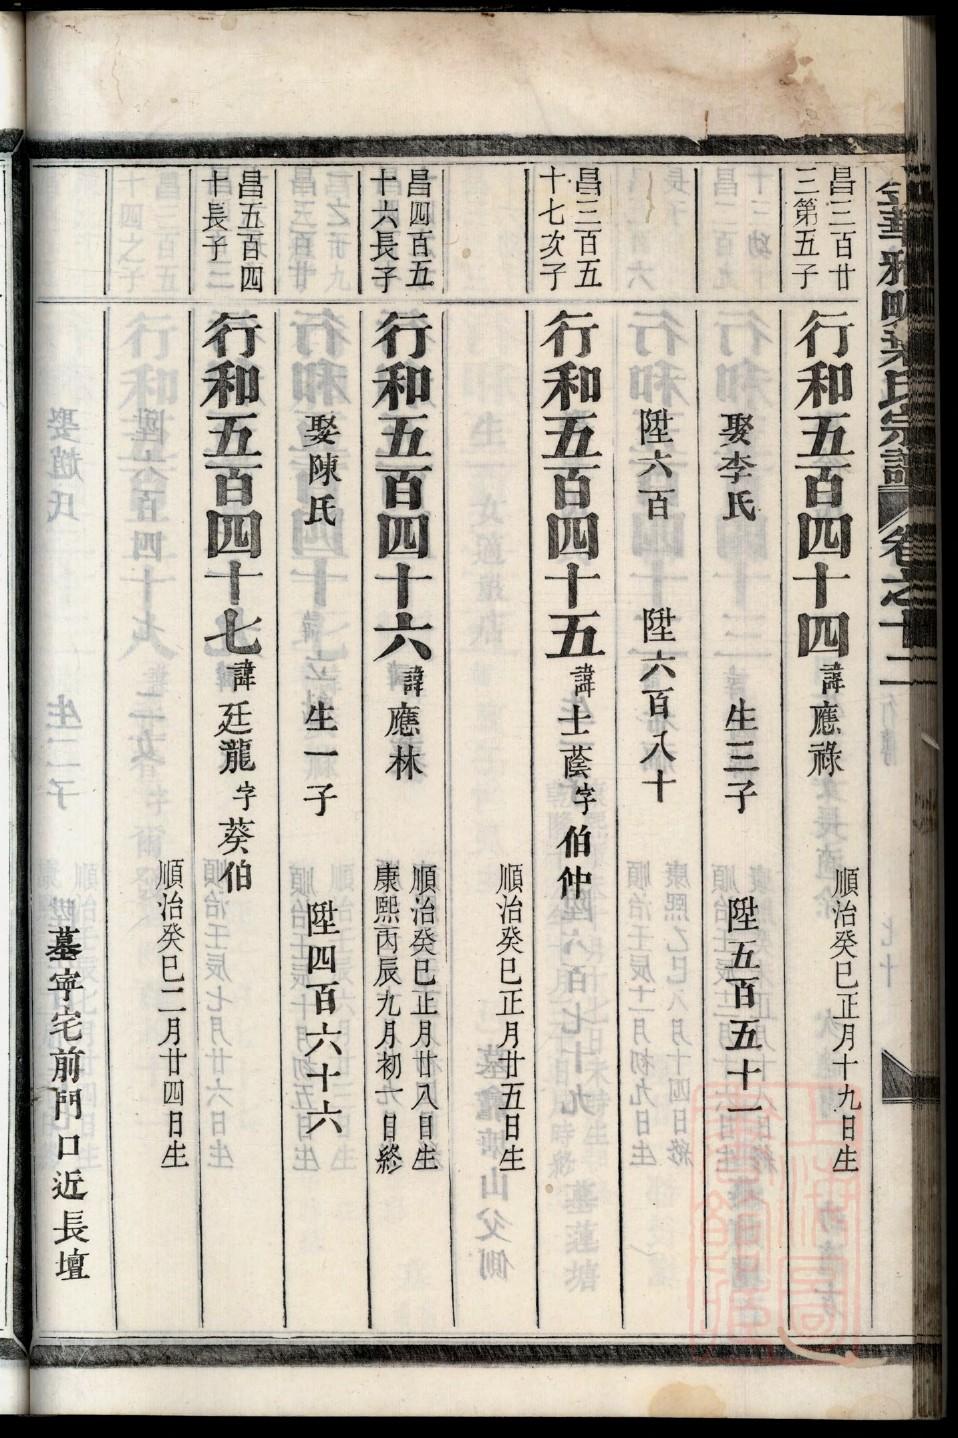 金華雅畈葉氏宗譜 卷之十二
昌三百廿
三第五子
行和五百四十四 諱應祿
順治癸巳正月十九日生
娶李氏 生三子 陞五百五十一
陞六百 陞六百八十
昌三百五
十七次子
行和五百四十五 諱士蔭 字伯仲
順治癸巳正月廿五日生
昌四百五
十六長子
行和五百四十六 諱應林
順治癸巳正月廿八日生
康熙丙辰九月初一日終
娶陳氏 生一子 陞四百六十六
昌五百四
十長子
行和五百四十七 諱廷龍 字葵伯
順治癸巳二月廿四日生
墓寜宅前門口近長壇